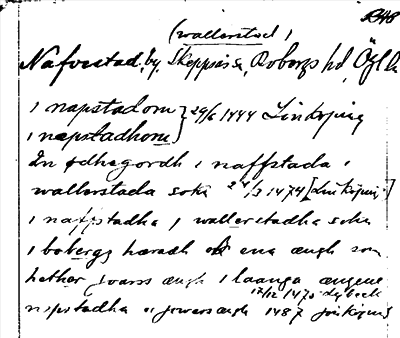 (wallerstad)
Näfvestad, by, Skeppsås s, Bobergs hd, Ögl
i napstadom } 29/6 1444 Linköping
i napstadhom
En ødhegordh i naffstada i
wallerstada sokn 24/3 1474 [Linköping]
i naffstadha i wallerstadha sokn
i bobergx hæradh ok ena ængh som
hether joars ængh i laanga ængene
17/12 1475
napstadha 1487 Jönköping